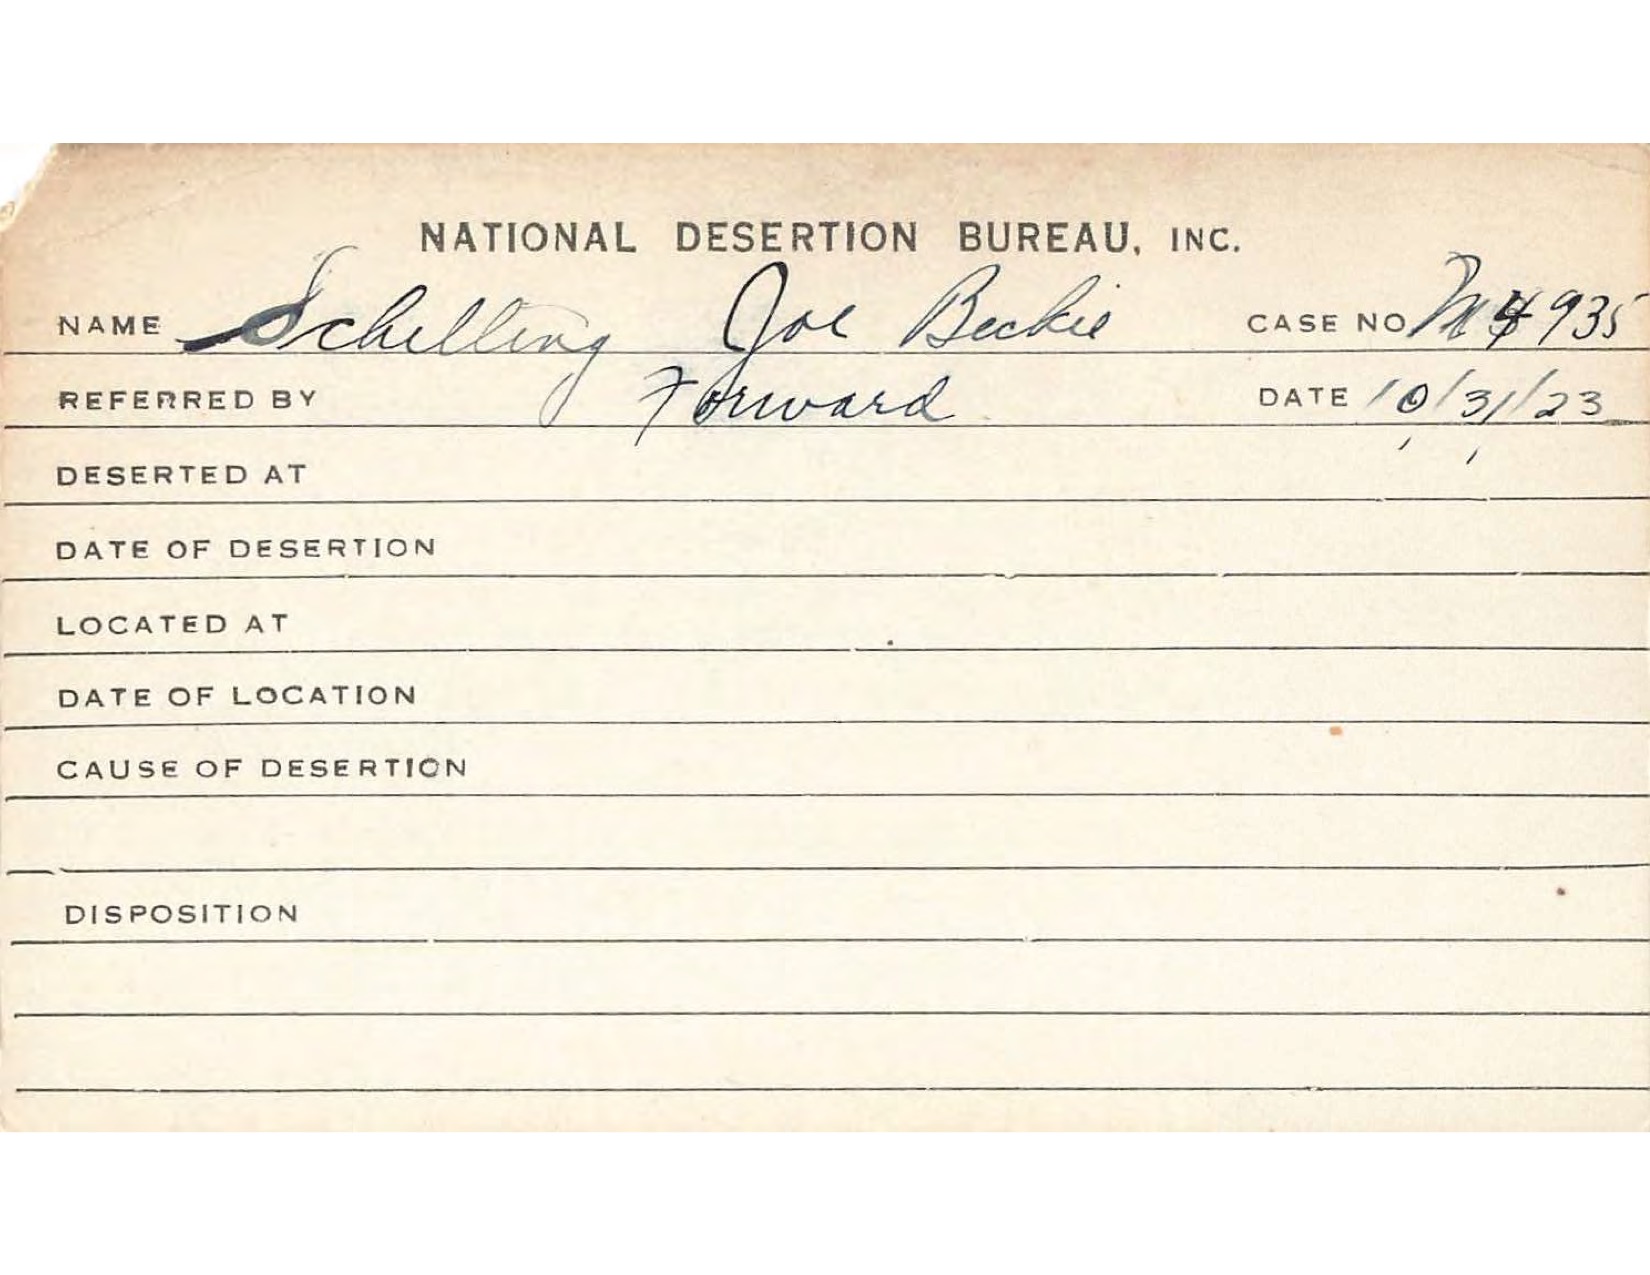 NATIONAL DESERTION BUREAU, INC.
NAME Schelling Joe Beckie CASE NO M 4935
REFERRED BY Forward DATE 10/31/23
DESERTED AT
DATE OF DESERTION
LOCATED AT
DATE OF LOCATION
CAUSE OF DESERTION
DISPOSITION